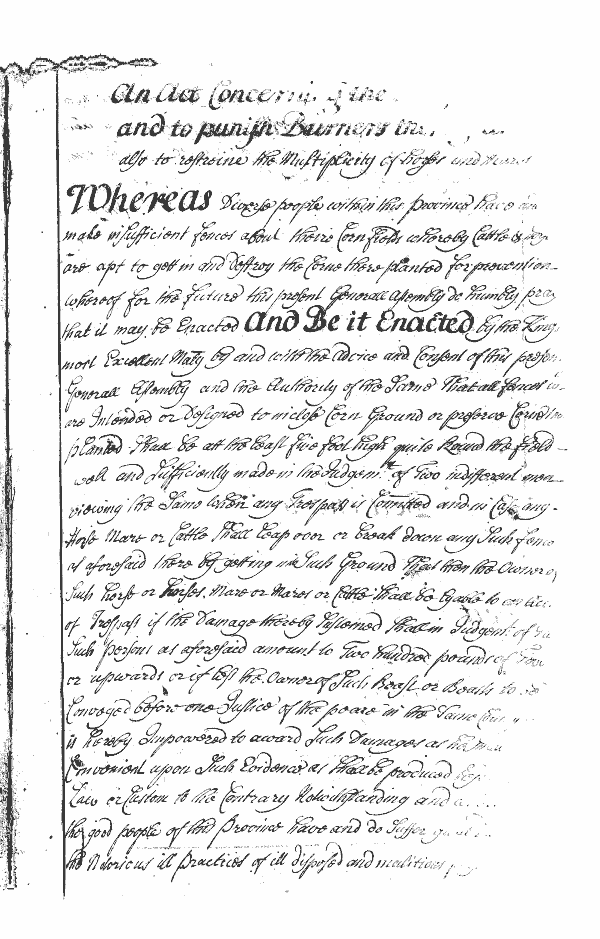 An Act Concerning the
and to punish Burners the
also to restreine the Multiplicity of horses and Mares
Whereas Diverse people within this Province have
make insufficient fences about theire Cornfields whereby Cattle
are apt to gett in and destroy the Corne there planted for prevention
whereof for the future this present Generall Assembly do humbly pray
that it may be Enacted And Be it Enacted by the King
most Excellent Maty by and with the advice and Consent of this present
Generall Assembly and the Authority of the Same That all fences
are Intended or Designed to inclose Corn Ground or preserve Corne
planted Shall be att the least five foot high quite Round the field
well and Sufficiently made in the Judgemt of Two indifferent men
viewing the Same when any Trespass is Comitted and in Case any
Horse Mare or Cattle Shall leap over or break down any Such fence
as aforesaid there by getting into Such Ground That then the Owner of
Such horse or horses, Mare or Mares or Cattle Shall be lyable to
of Trespass if the Damage thereby Susteined Shall in Judgent of
Such Persons as aforesaid amount to Two hundred pounds of
or upwards or if less the Owner of Such Beast or Beasts to
Conveyed before one Justice of the peace in the Same
is hereby Impowered to award Such Damages as he
Convenient upon Such Evidence as Shall be produced
Law or Custom to the Contrary Notwithstanding and
the good people of this Province have and do Suffer
the Notorious ill Practices of ill disposed and malitious